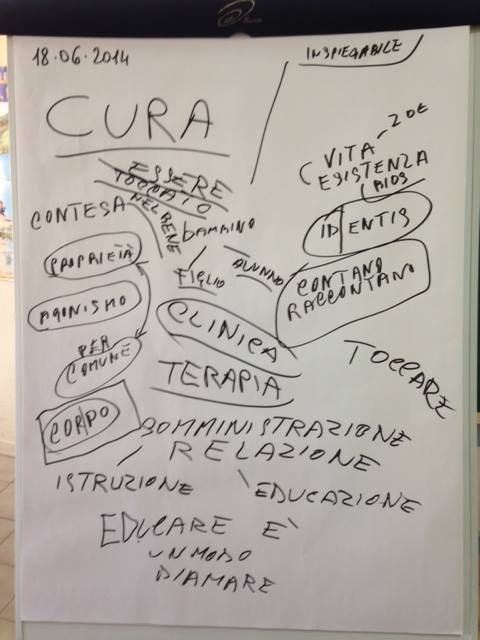 18.06.2014
INSPIEGABILE
CURA
ZOE
VITA
ESISTENZA
BIOS
ESSERE
TOCCATO
NEL BENE
CONTESA
BAMBINO
IDENTIS
PROPRIETÀ
FIGLIO
ALUNNO
CONTANO
RACCONTANO
AGONISMO
CLINICA
PER
COMUNE
TERAPIA
TOCCARE
CORPO
SOMMINISTRAZIONE
RELAZIONE
ISTRUZIONE
EDUCAZIONE
EDUCARE E'
UN MODO
DI AMARE